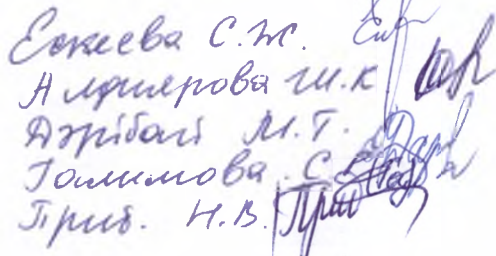 Ескеева С.Ж.
Алдиярова Ш.К
Дәрібай М.Т.
Галимова С.
Приб. Н.В.